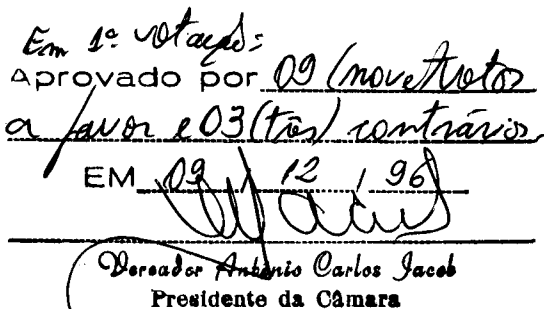 Em 1ª votação:
Aprovado por 09 (nove) votos
a favor e 03 (três) contrários
EM 09 / 12 / 96
Vereador Antônio Carlos Jacob
Presidente da Câmara